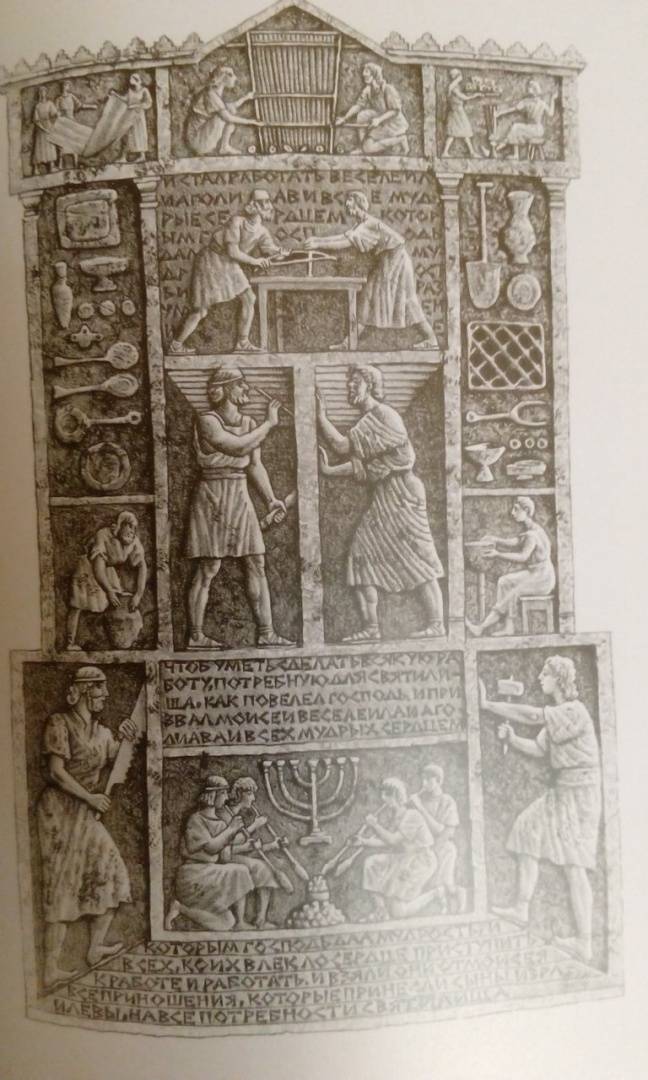 И СТАЛ РАБОТАТЬ ВЕСЕЛЕИЛ
И АГОЛИАВ И ВСЕ МУД
РЫЕ СЕРДЦЕМ КОТОР
ЫМ ГОСПОДЬ
ДАЛ
ЧТОБ УМЕТЬ СДЕЛАТЬ ВСЯКУЮ РА
БОТУ, ПОТРЕБНУЮ ДЛЯ СВЯТИЛИ-
ЩА, КАК ПОВЕЛЕЛ ГОСПОДЬ. И ПРИ
ЗВАЛ МОИСЕИ ВЕСЕЛЕИЛА И АГО
ЛИАВА И ВСЕХ МУДРЫХ СЕРДЦЕМ
КОТОРЫМ ГОСПОДЬ ДАЛ МУДРОСТЬ, И
ВСЕХ, КОИХ ВЛЕКЛО СЕРДЦЕ ПРИСТУПИТЬ
К РАБОТЕ И РАБОТАТЬ. И ВЗЯЛИ ОНИ ОТ МОИСЕЯ
ВСЕ ПРИНОШЕНИЯ, КОТОРЫЕ ПРИНЕСЛИ СЫНЫ ИЗРА
ИЛЕВЫ, НА ВСЕ ПОТРЕБНОСТИ СВЯТИЛИЩА